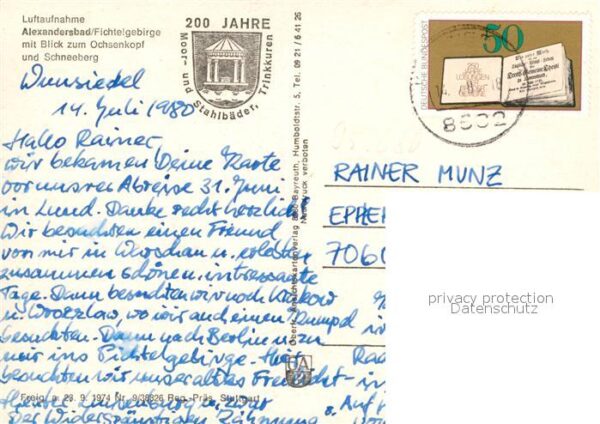 Luftaufnahme
Alexandersbad/Fichtelgebirge
mit Blick zum Ochsenkopf
und Schneeberg
200 JAHRE
Moor- und Stahlbäder, Trinkkuren
DEUTSCHE BUNDESPOST
50
250
LOSUNGEN
8592
Wunsiedel
14. Juli 1980
Hallo Rainer,
wir bekamen Deine Karte
vor unsrer Abreise 31. Juni
in Lund. Danke recht herzlich!
Wir besuchten einen Freund
von mir in Warschau u. erlebten
zusammen schöne u. interessante
Tage. Dann besuchten wir noch Krakow
u. Wrocław, wo wir auch einen Kumpel
besuchten. Dann nach Berlin u. zu
mir ins Fichtelgebirge. Hier
besuchten wir unser altes
Theater Luisenburg u. zwar
Der Widerspänstigen Zähmung
RAINER MUNZ
EPPE
7060
Humboldtstr. 5, Tel. 09 21 / 6 41 26
Nachdruck verboten
privacy protection
Datenschutz
Freig. d. 23. 9. 1974 Nr. 9/38326 Reg.-Präs. Stuttgart